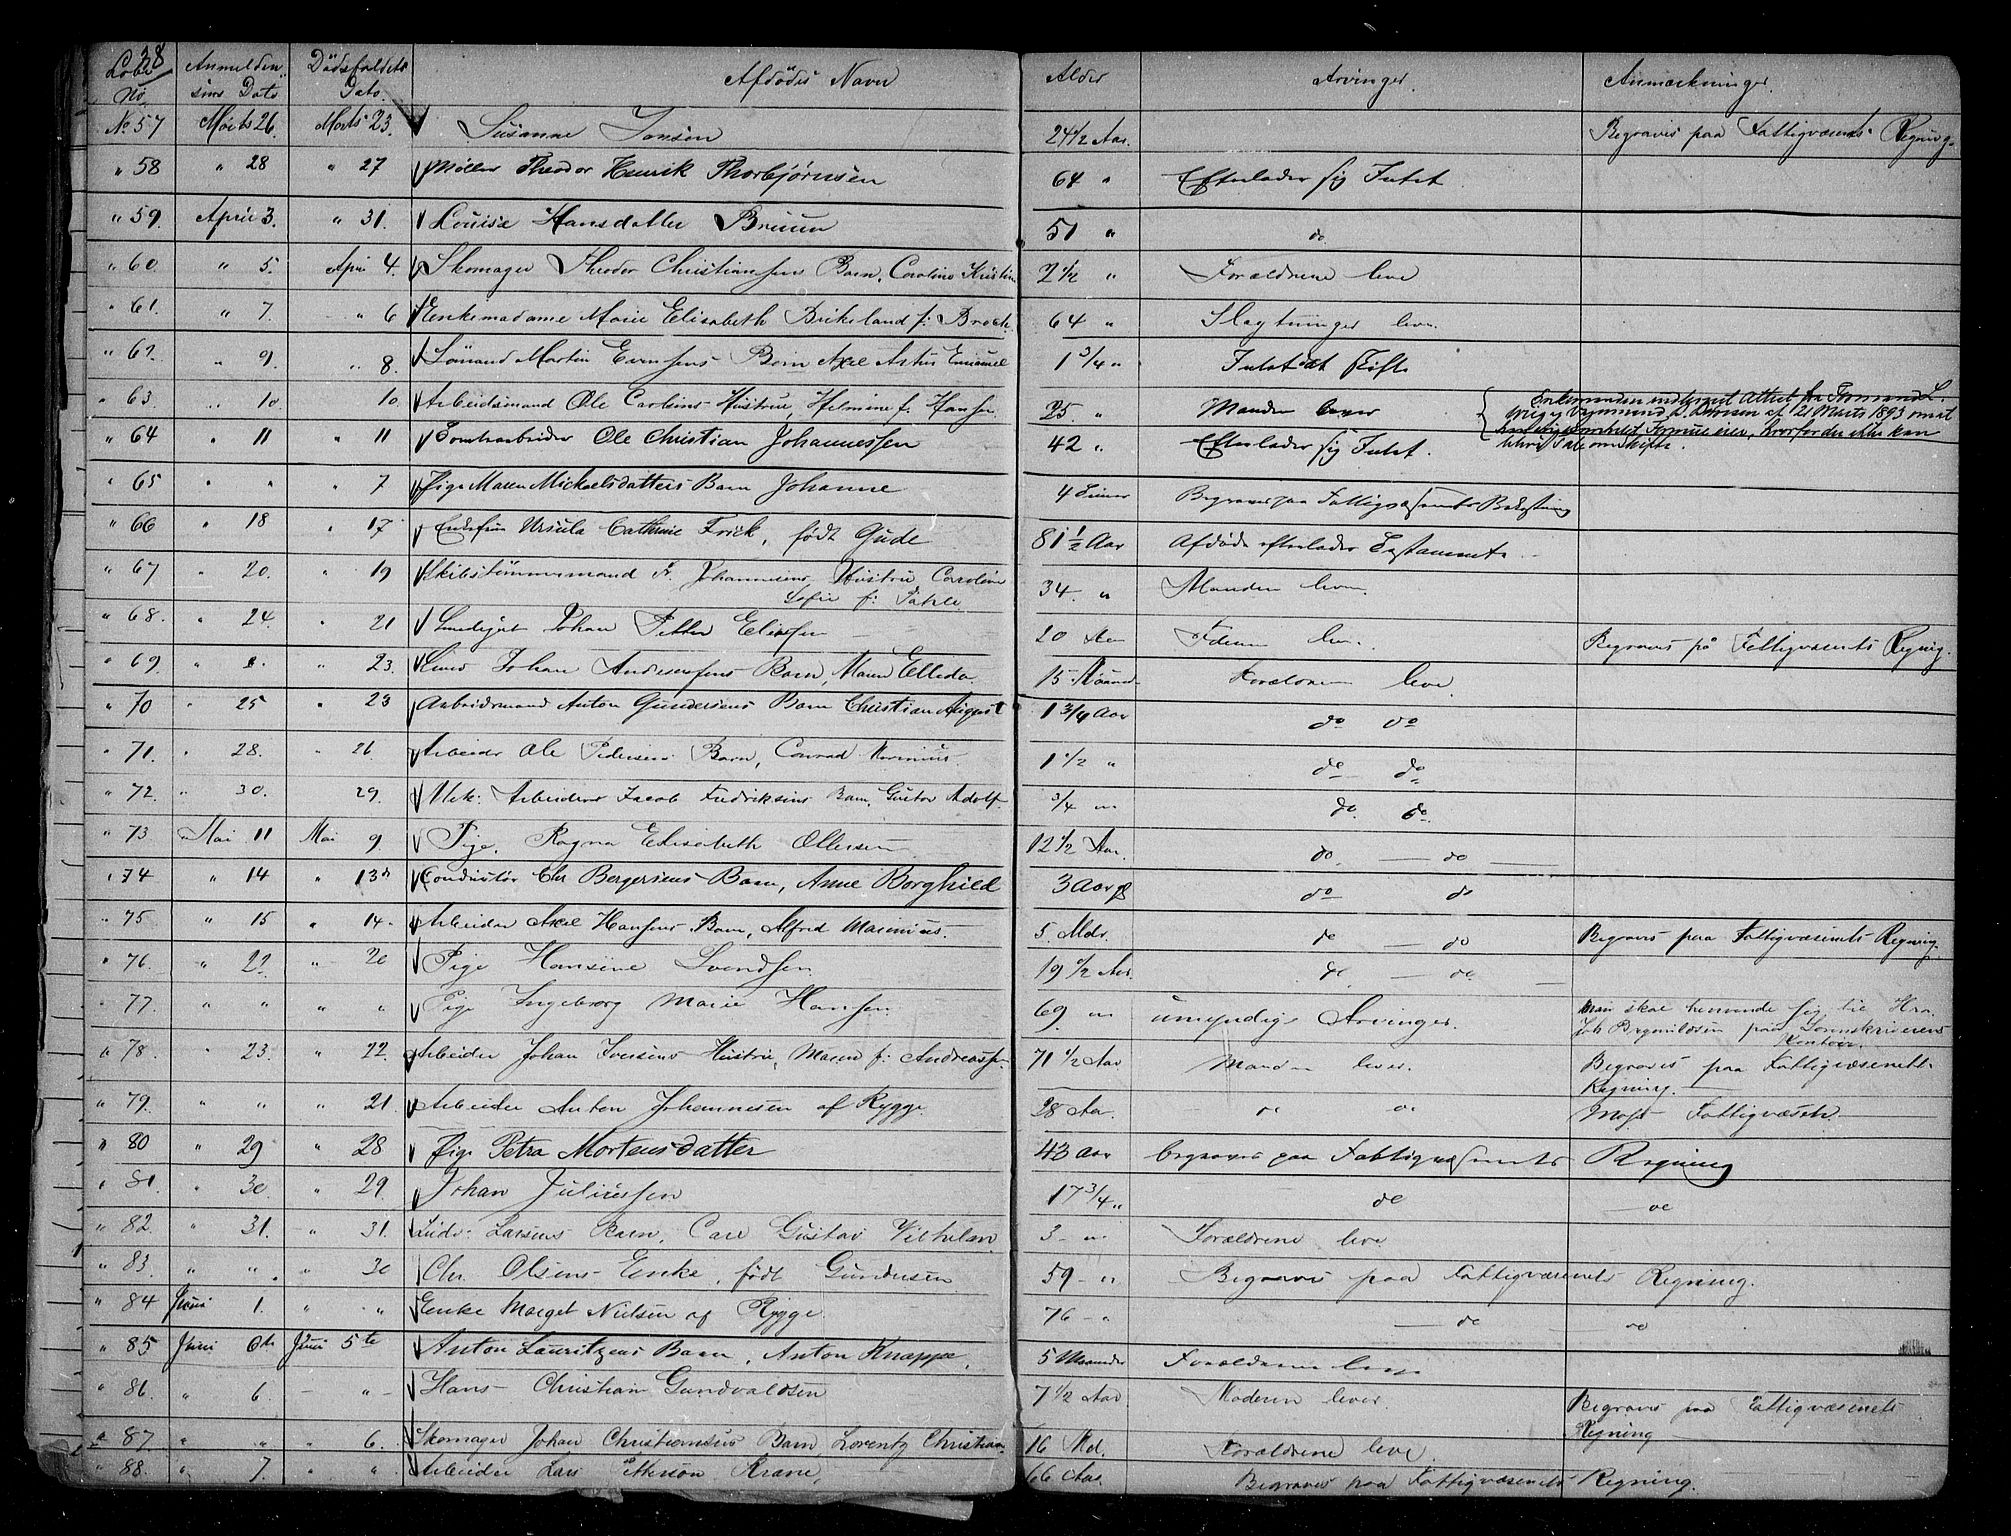 38
Løbe No. Anmeldensens Dato Dödsfaldets Dato Afdödes Navn Alder Arvinger. Anmærkninger.
No 57 Marts 26. Marts 23. Susanne Jonsen 24 1/2 Aar. Begraves paa Fattigvæsenets Regning.
" 58 " 28 " 27 Møller Theodor Henrik Thorbjørnsen 64 " Efterlader sig Intet.
" 59. April 3. " 31. Louise Hansdatter Bruun 51 " do
" 60. " 5. April 4. Skomager Theodor Christiansens Barn, Caroline Kristine 2 1/2 " Forældrene leve
" 61. " 7. " 6 Enkemadame Marie Elisabeth Birkeland f: Broch. 64 " Slægtninger leve.
" 62. " 9. " 8. Sømand Martin Evensens Barn Axel Artur Emanuel 1 3/4 " Intet at skifte
" 63. " 10. 10. Arbeidsmand Ole Carlsens Hustru, Helmine f. Hansen. 25. " Manden lever
" 64 " 11 " 11 Tomtearbeider Ole Christian Johannessen 42 " Efterlader sig Intet.
" 65 " " " 7 Pige Maren Mickaelsdatters Barn Johanne 4 Timer Begraves paa Fattigvæsenets Bekostning
" 66 " 18 " 17 Enkefru Ursula Cathrine Frick, født Gude 81 1/2 Aar Afdøde efterlader Testamente.
" 67 " 20. " 19 Skibstømmermand F. Johannesens Hustru Caroline
Sofie f: 34. " Manden lever.
" 68. " 24. " 21 Smedegut Johan Petter Eliassen 20 Aar Faderen lever. Begraves på Fattigvæsenets Regning.
" 69 " " " 23. Smed Johan Andersens Barn, Maren Ellida. 15 Maaned Forældrene leve.
" 70 " 25 " 23 Arbeidsmand Anton Gundersens Barn Christian August 1 3/4 Aar do do
" 71. " 28. " 26 Arbeider Ole Pedersens Barn, Conrad Marinius. 1 1/2 " do do
" 72. " 30. 29. Mek: Arbeider Jacob Fredriksens Barn, Gustav Adolf. 3/4 " do. do.
" 73 Mai 11 Mai 9 Pige, Ragna Elisabeth Ollersen 12 1/2 Aar. do. — do —
" 74 " 14 " 13 Conductør Chr Bergersens Barn, Anne Borghild 3 Aar do do
" 75 " 15 " 14. Arbeider Axel Hansens Barn, Alfred Marinius. 5. Mdr. do — do Begraves paa Fattigvæsenets Regning.
" 76. " 22 " 20 Pige Hansine Svendsen. 19 1/2 Aar. do. — do —
" 77. " " " " Pige Ingeborg Marie Hansen 69 " umyndige Arvinger. Man skal henvende sig til Hrr.
paa Sorenskriverens
Kontoir.
" 78. " 23. " 22. Arbeider Johan Iversens Hustru, Maren f: Andreassen. 71 1/2 Aar Manden lever. Begraves paa Fattigvæsenets
Regning.
" 79. " " " 21. Arbeider Anton Johannesen af Rygge 28 Aar. do do Moss Fattigvæsen.
" 80 " 29 " 28 Pige Petra Mortensdatter 43 Aar begraves paa Fattigvæsenets Regning
" 81 " 30. " 29. Johan Juliussen 17 3/4 " do — do
" 82. " 31. " 31. Ludv. Larsens Barn, Carl Gustav Vilhelm. 3 — " Forældrene leve.
" 83. " " " 30 Chr. Olsens Enke, født Gundersen 59 — " Begraves paa Fattigvæsenets Regning.
" 84 Juni 1. " " Enke Marget Nielsen af Rygge. 76 — " — do do
" 85 Juni 6te Juni 5te Anton Lauritzens Barn, Anton Knappe. 5 Maaneder Forældrene leve
" 86. " 6. — " — Hans Christian Gundvaldsen 7 1/2 Aar Moderen lever. Begraves paa Fattigvæsenets
Regning
" 87 " " " 6. Skomager Johan Christiansens Barn Lorentz Christian. 16 Md. Forældrene leve.
" 88. " 7. " " Arbeider Lars Pettersen Krane, 66 Aar. Begraves paa Fattigvæsenets Regning.